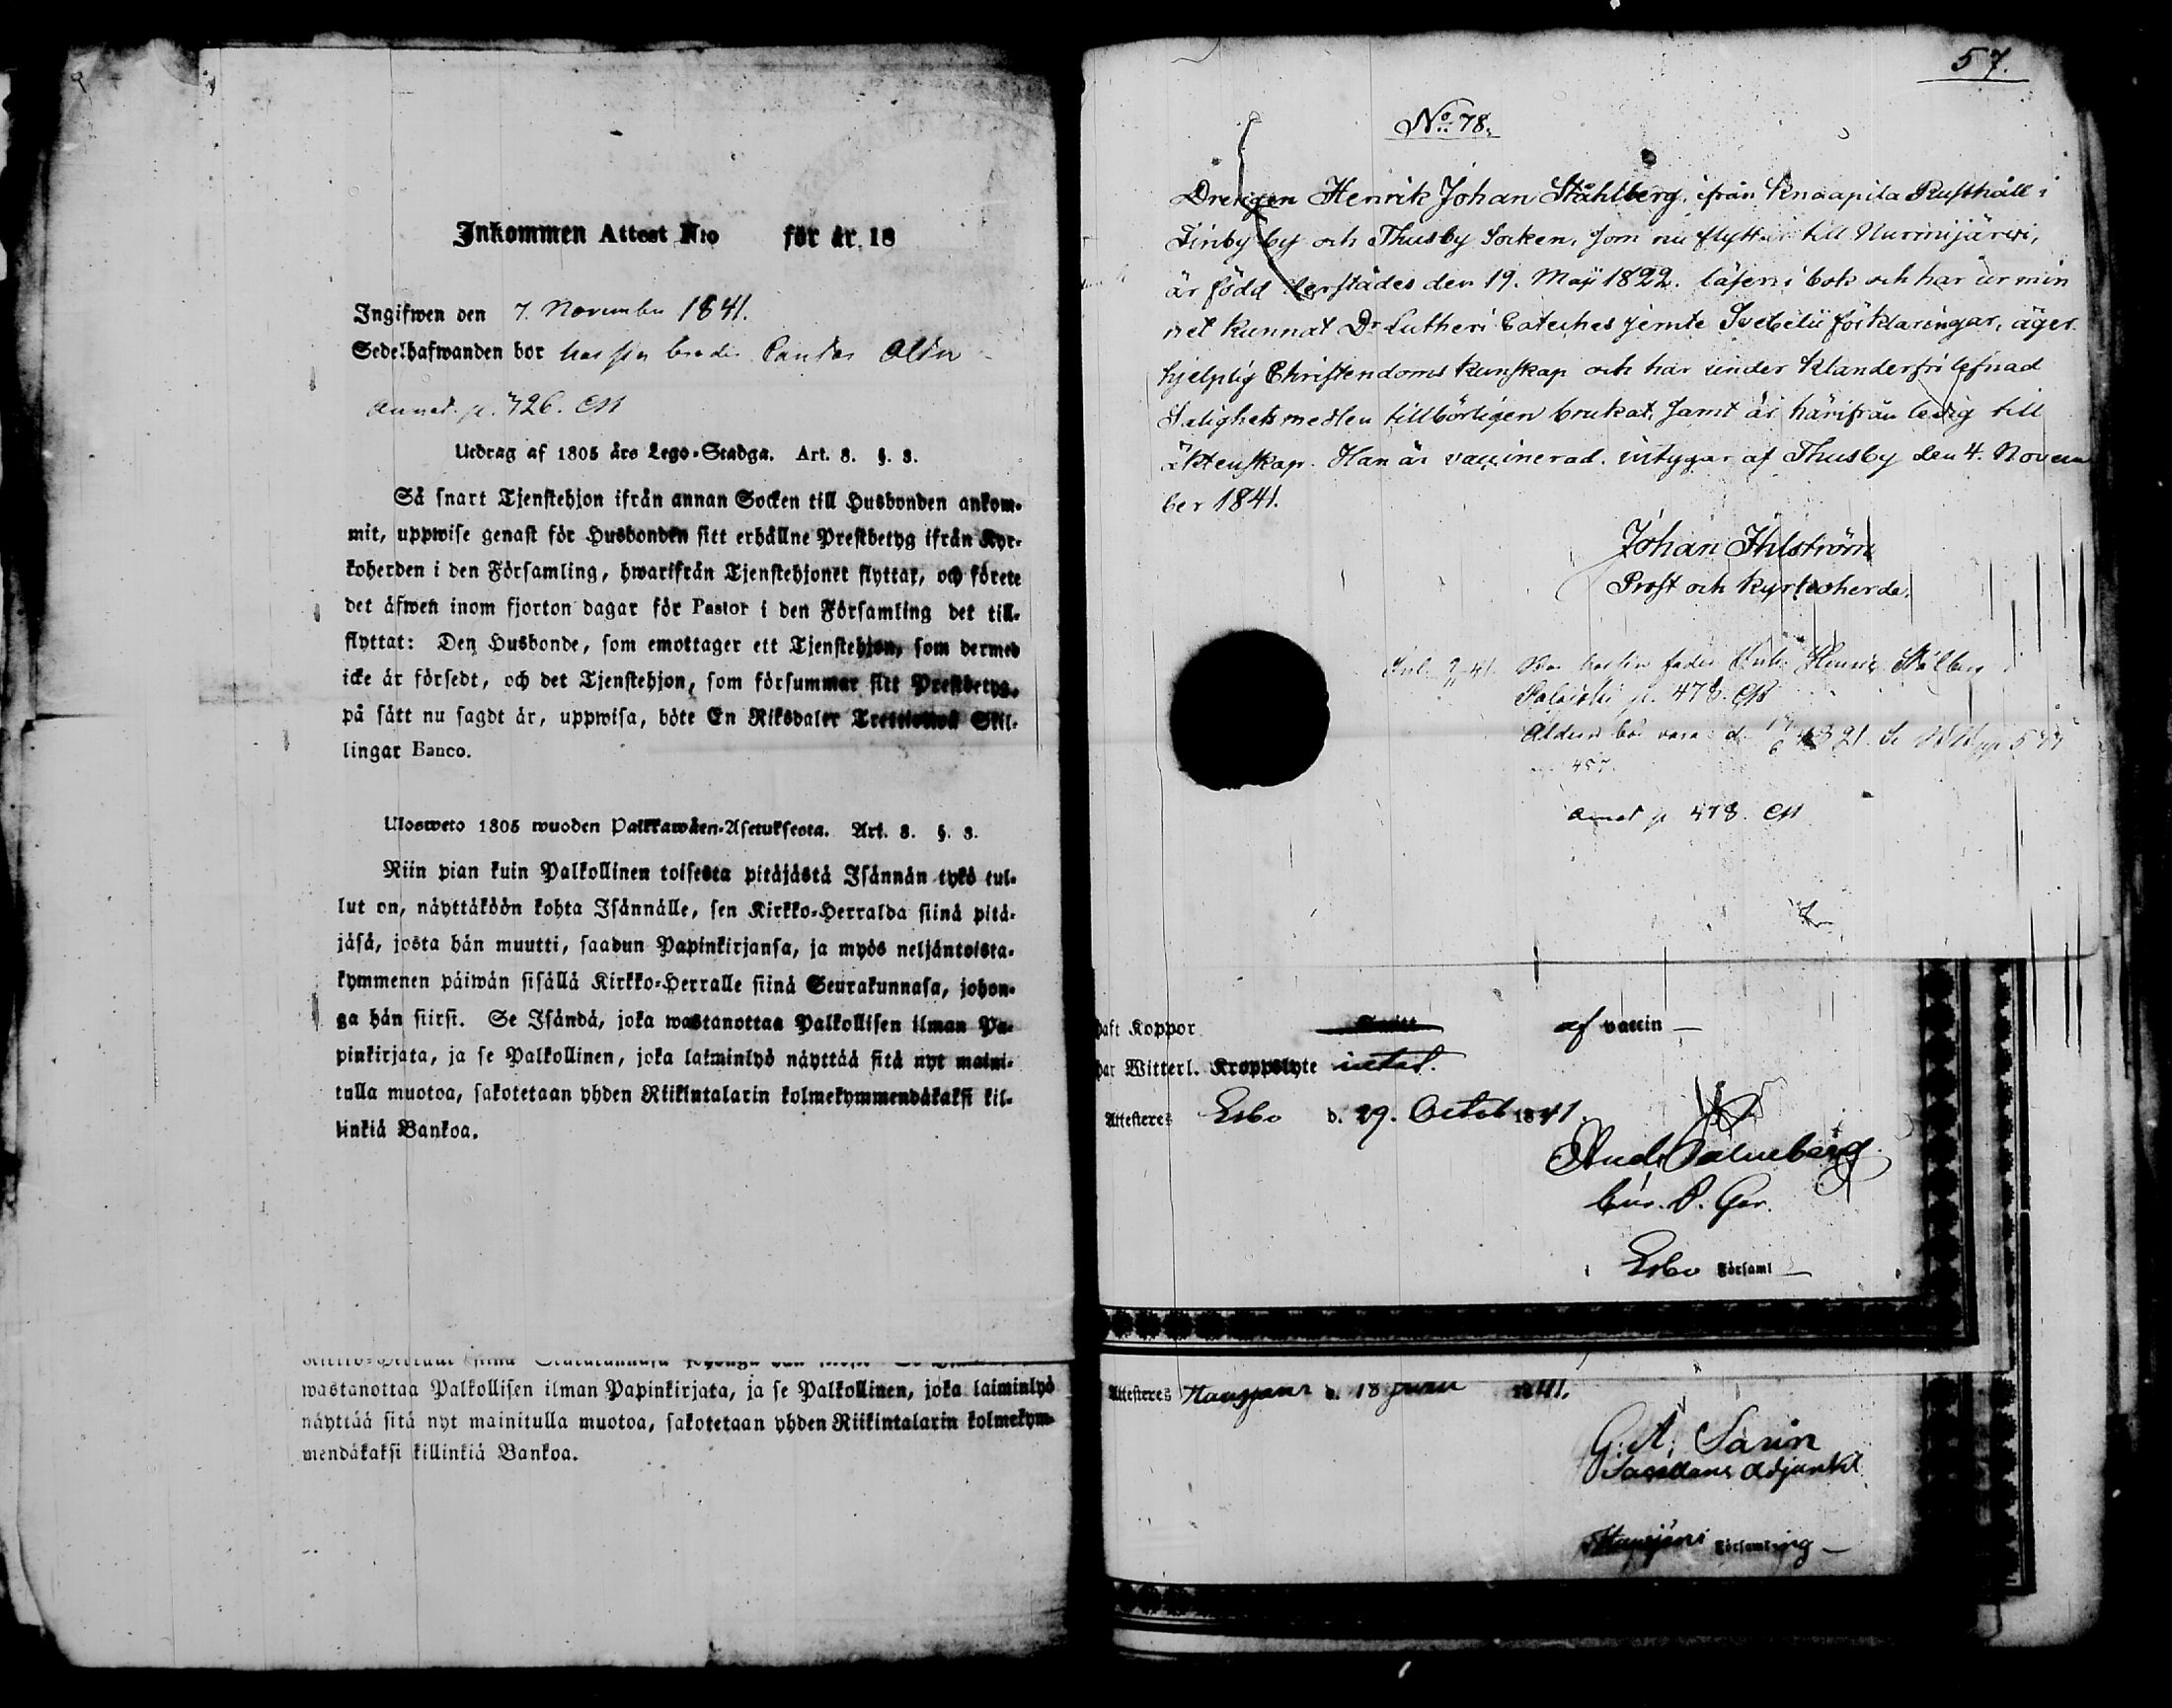 Inkommen Attest N:o för år 18
Ingifwen den 7. November 1841.
Sedelhafwanden bor hos sin
Annot. p. 726.
Utdrag af 1805 års Lego-Stadga. Art. 8. §. 3.
Så snart Tjenstehjon ifrån annan Socken till Husbonden ankom-
mit, uppwise genast för Husbonden sitt erhållne Prestbetyg ifrån Kyr-
koherden i den Församling, hwarifrån Tjenstehjonet flyttat, och förete
det äfwen inom fjorton dagar för Pastor i den Församling det till-
flyttat: Den Husbonde, som emottager ett Tjenstehjon, som dermed
icke är försedt, och det Tjenstehjon, som försummar sitt Prestbetyg,
på sätt nu sagdt är, uppwisa, böte En Riksdaler Trettiotwå Skil-
lingar Banco.
Ulosweto 1805 wuoden Palkkawäen-Asetuksesta. Art. 8. §. 3.
Niin pian kuin Palkollinen toisesta pitäjästä Isännän tykö tul-
lut on, näyttäköön kohta Isännälle, sen Kirkko-Herralda siinä pitä-
jäsä, josta hän muutti, saadun Papinkirjansa, ja myös neljäntoista-
kymmenen päiwän sisällä Kirkko-Herralle siinä Seurakunnasa, johon-
ga hän siirsi. Se Isändä, joka wastanottaa Palkollisen ilman Pa-
pinkirjata, ja se Palkollinen, joka laiminlyö näyttää sitä nyt maini-
tulla muotoa, sakotetaan yhden Riikintalarin kolmekymmendäkaksi kil-
linkiä Bankoa.
wastanottaa Palkollisen ilman Papinkirjata, ja se Palkollinen, joka laiminlyö
näyttää sitä nyt mainitulla muotoa, sakotetaan yhden Riikintalarin kolmekym-
mendäkaksi killinkiä Bankoa.
57.
No: 78.
Drengen Henrik Johan Ståhlberg, ifrån Knaapila Rusthåll i
by och Thusby Socken, som nu flyttar till Nurmijärwi,
är född derstädes den 19. Maji 1822. läser i bok och har ur min
net kunnat Dr Lutheri Cateches jemte Svebelii förklaringar, äger
hjelplig Christendoms kunskap och har under klanderfri lefnad
Salighetsmedlen tillbörligen brukat, samt är härifrån ledig till
äktenskap. Han är vaccinerad. intygar af Thusby den 4. Novem
ber 1841.
Johan Ihlström
Prost och Kyrkoherde.
fader Henric Stålberg
p. 478.
Åldern bör vara d. 1821.
457.
Annot p 478.
haft Koppor af vaccin —
har Witterl. Kroppslyte intet.
Attesteres Esbo d. 29. Octob 1841.
And. Palmeberg.
i Esbo Församl —
Attesteres Hausjärvi d. 18 Junii 1841.
G. A. Sarin
Adjunkt
Hausjärvi Församling —